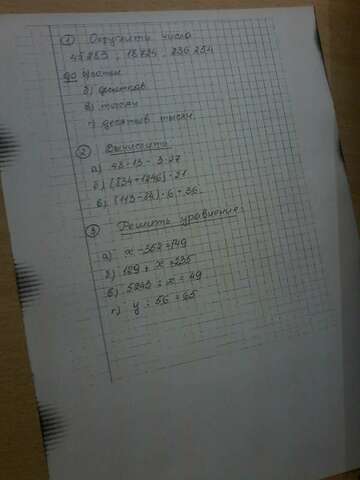 ① Округлить числа
45 283 ; 18 724 ; 236 254
до
б) десятков
в) тысяч
г) десятков тысяч.
② Вычислить
а) 43 · 13 - 3 · 27
б) (834 + 1246) · 21
в) (113 - 24) · 6 + 36
③ Решить уравнение:
а) x - 362 = 149
б) 129 + x = 235
в) 5243 : x = 49
г) y : 56 = 65